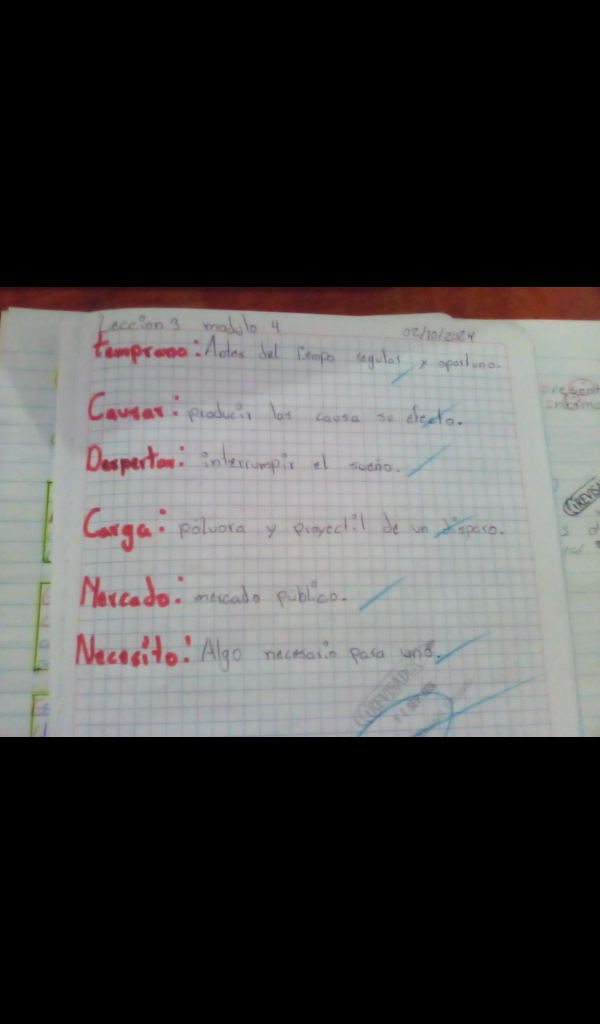 Leccion 3 modulo 4 02/10/2024
temprano: Antes del tiempo regular y oportuno.
Causar: producir los causa su efecto.
Despertar: interrumpir el sueño.
Carga: polvora y proyectil de un disparo.
Mercado: mercado publico.
Necesito: Algo necesario para uno.
REVISADO
REVISADO